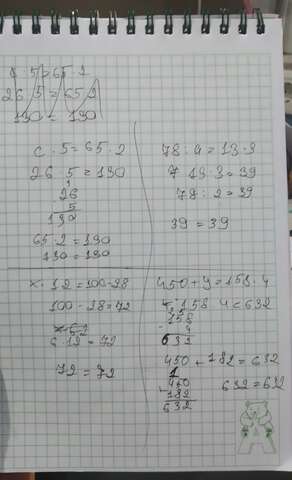 5 = 65 · 2
26 5 = 65 2
130 = 130
c · 5 = 65 · 2
26 · 5 = 130
26
5
130
65 · 2 = 130
130 = 130
x · 12 = 100 - 28
100 - 28 = 72
6 · 12 = 72
72 = 72
78 : y = 13 · 3
13 · 3 = 39
78 : 2 = 39
39 = 39
450 + y = 158 · 4
158 4 = 632
158
4
632
450 + 182 = 632
450
182
632
632 = 632